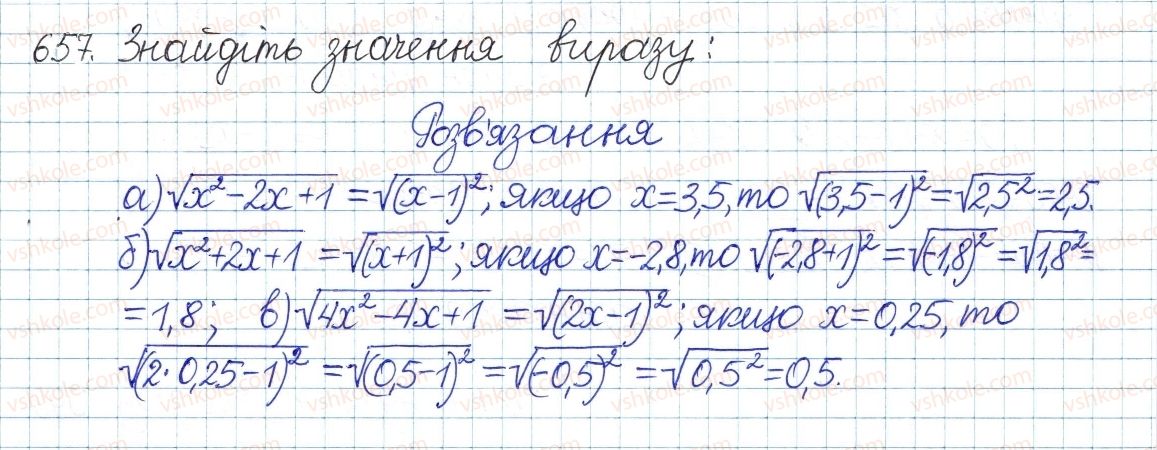 657. Знайдіть значення виразу:
Розв'язання
а) √(x² – 2x + 1) = √(x – 1)²; якщо x = 3,5, то √(3,5 – 1)² = √2,5² = 2,5.
б) √(x² + 2x + 1) = √(x + 1)²; якщо x = –2,8, то √(–2,8 + 1)² = √(–1,8)² = √1,8² =
= 1,8; в) √(4x² – 4x + 1) = √(2x – 1)²; якщо x = 0,25, то
√(2 · 0,25 – 1)² = √(0,5 – 1)² = √(–0,5)² = √0,5² = 0,5.